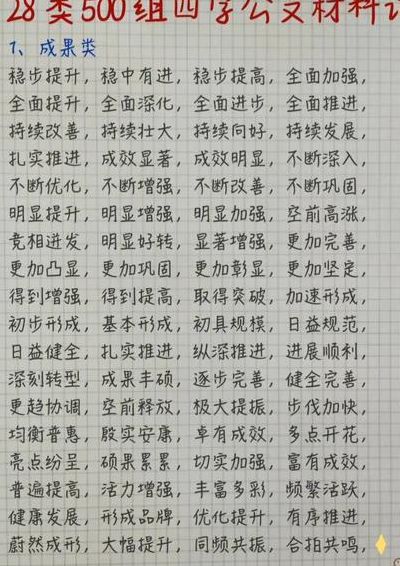 28类500组四字公文材料
1、成果类
稳步提升，稳中有进，稳步提高，全面加强，
全面提升，全面深化，全面进步，全面推进，
持续改善，持续壮大，持续向好，持续发展，
扎实推进，成效显著，成效明显，不断深入，
不断优化，不断增强，不断改善，不断巩固，
明显提升，明显增强，明显加强，空前高涨，
竞相迸发，明显好转，显著增强，更加完善，
更加凸显，更加巩固，更加彰显，更加坚定，
得到增强，得到提高，取得突破，加速形成，
初步形成，基本形成，初具规模，日益规范，
日益健全，扎实推进，纵深推进，进展顺利，
深刻转型，成果丰硕，逐步完善，健全完善，
更趋协调，空前释放，极大提振，步伐加快，
均衡普惠，殷实安康，卓有成效，多点开花，
亮点纷呈，硕果累累，切实加强，富有成效，
普遍提高，活力增强，丰富多彩，频繁活跃，
健康发展，形成品牌，优化提升，有序推进，
蔚然成形，大幅提升，同频共振，合拍共鸣，